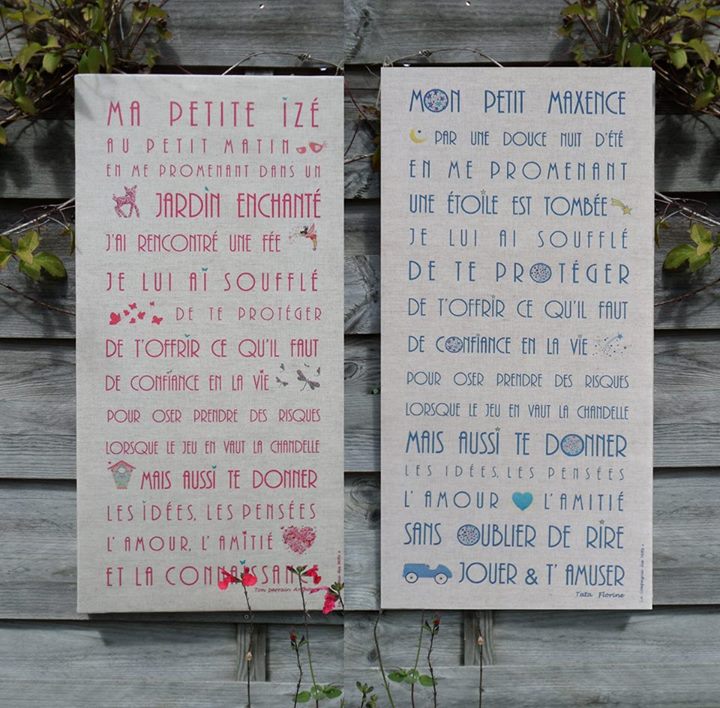 MA PETITE IZÉ
AU PETIT MATIN
EN ME PROMENANT DANS UN
JARDIN ENCHANTÉ
J'AI RENCONTRÉ UNE FÉE
JE LUI AI SOUFFLÉ
DE TE PROTÉGER
DE T'OFFRIR CE QU'IL FAUT
DE CONFIANCE EN LA VIE
POUR OSER PRENDRE DES RISQUES
LORSQUE LE JEU EN VAUT LA CHANDELLE
MAIS AUSSI TE DONNER
LES IDÉES, LES PENSÉES
L'AMOUR, L'AMITIÉ
ET LA CONNAISSANCE
Ton parrain
MON PETIT MAXENCE
PAR UNE DOUCE NUIT D'ÉTÉ
EN ME PROMENANT
UNE ÉTOILE EST TOMBÉE
JE LUI AI SOUFFLÉ
DE TE PROTÉGER
DE T'OFFRIR CE QU'IL FAUT
DE CONFIANCE EN LA VIE
POUR OSER PRENDRE DES RISQUES
LORSQUE LE JEU EN VAUT LA CHANDELLE
MAIS AUSSI TE DONNER
LES IDÉES, LES PENSÉES
L'AMOUR L'AMITIÉ
SANS OUBLIER DE RIRE
JOUER & T'AMUSER
Tata Florine